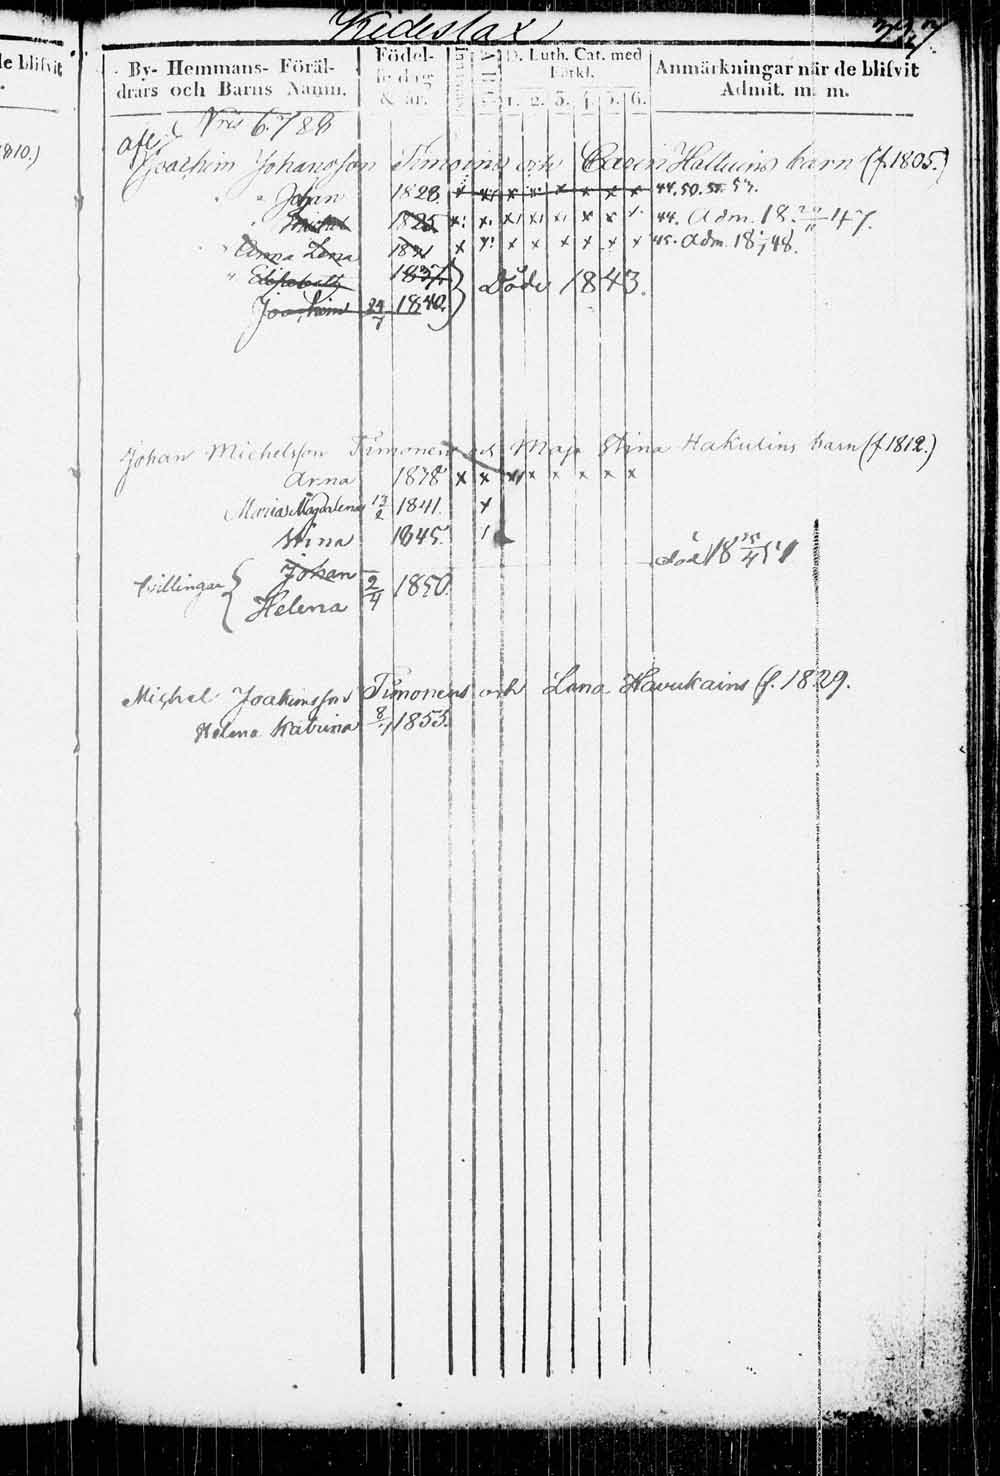 Kideslax 737.
de blifvit
By- Hemmans- Föräl-
drars och Barns Namn.
Födel-
se dag
& år.
D. Luth. Cat. med
Förkl.
1. 2. 3. 4. 5. 6.
Anmärkningar när de blifvit
Admit. m. m.
1810.)
afl.
Joachim Johansson Timoins och Halluins barn (f. 1805.)
" " Johan 1823 x x x x x x x x 44. 50. 53.
1825 x x x x x x x 44. Adm. 18 47.
" Anna Lena x x x x x x x x 45. Adm. 18 48.
" Elisabeth
Joachim 24/7 1842.
Döde 1843.
Johan Michelsson Timonens och Maja Stina Hakulins barn (f 1812.)
Anna 1838 x x x x x x x x
Maria Magdalena 13/2 1841. x
Stina 1845.
Tvillingar
Johan
död 18 25/4 51
Helena 2/4 1850.
Michel Joakimsson Timonens och Lena Havukains (f. 1829.
Helena Katrina 1853.